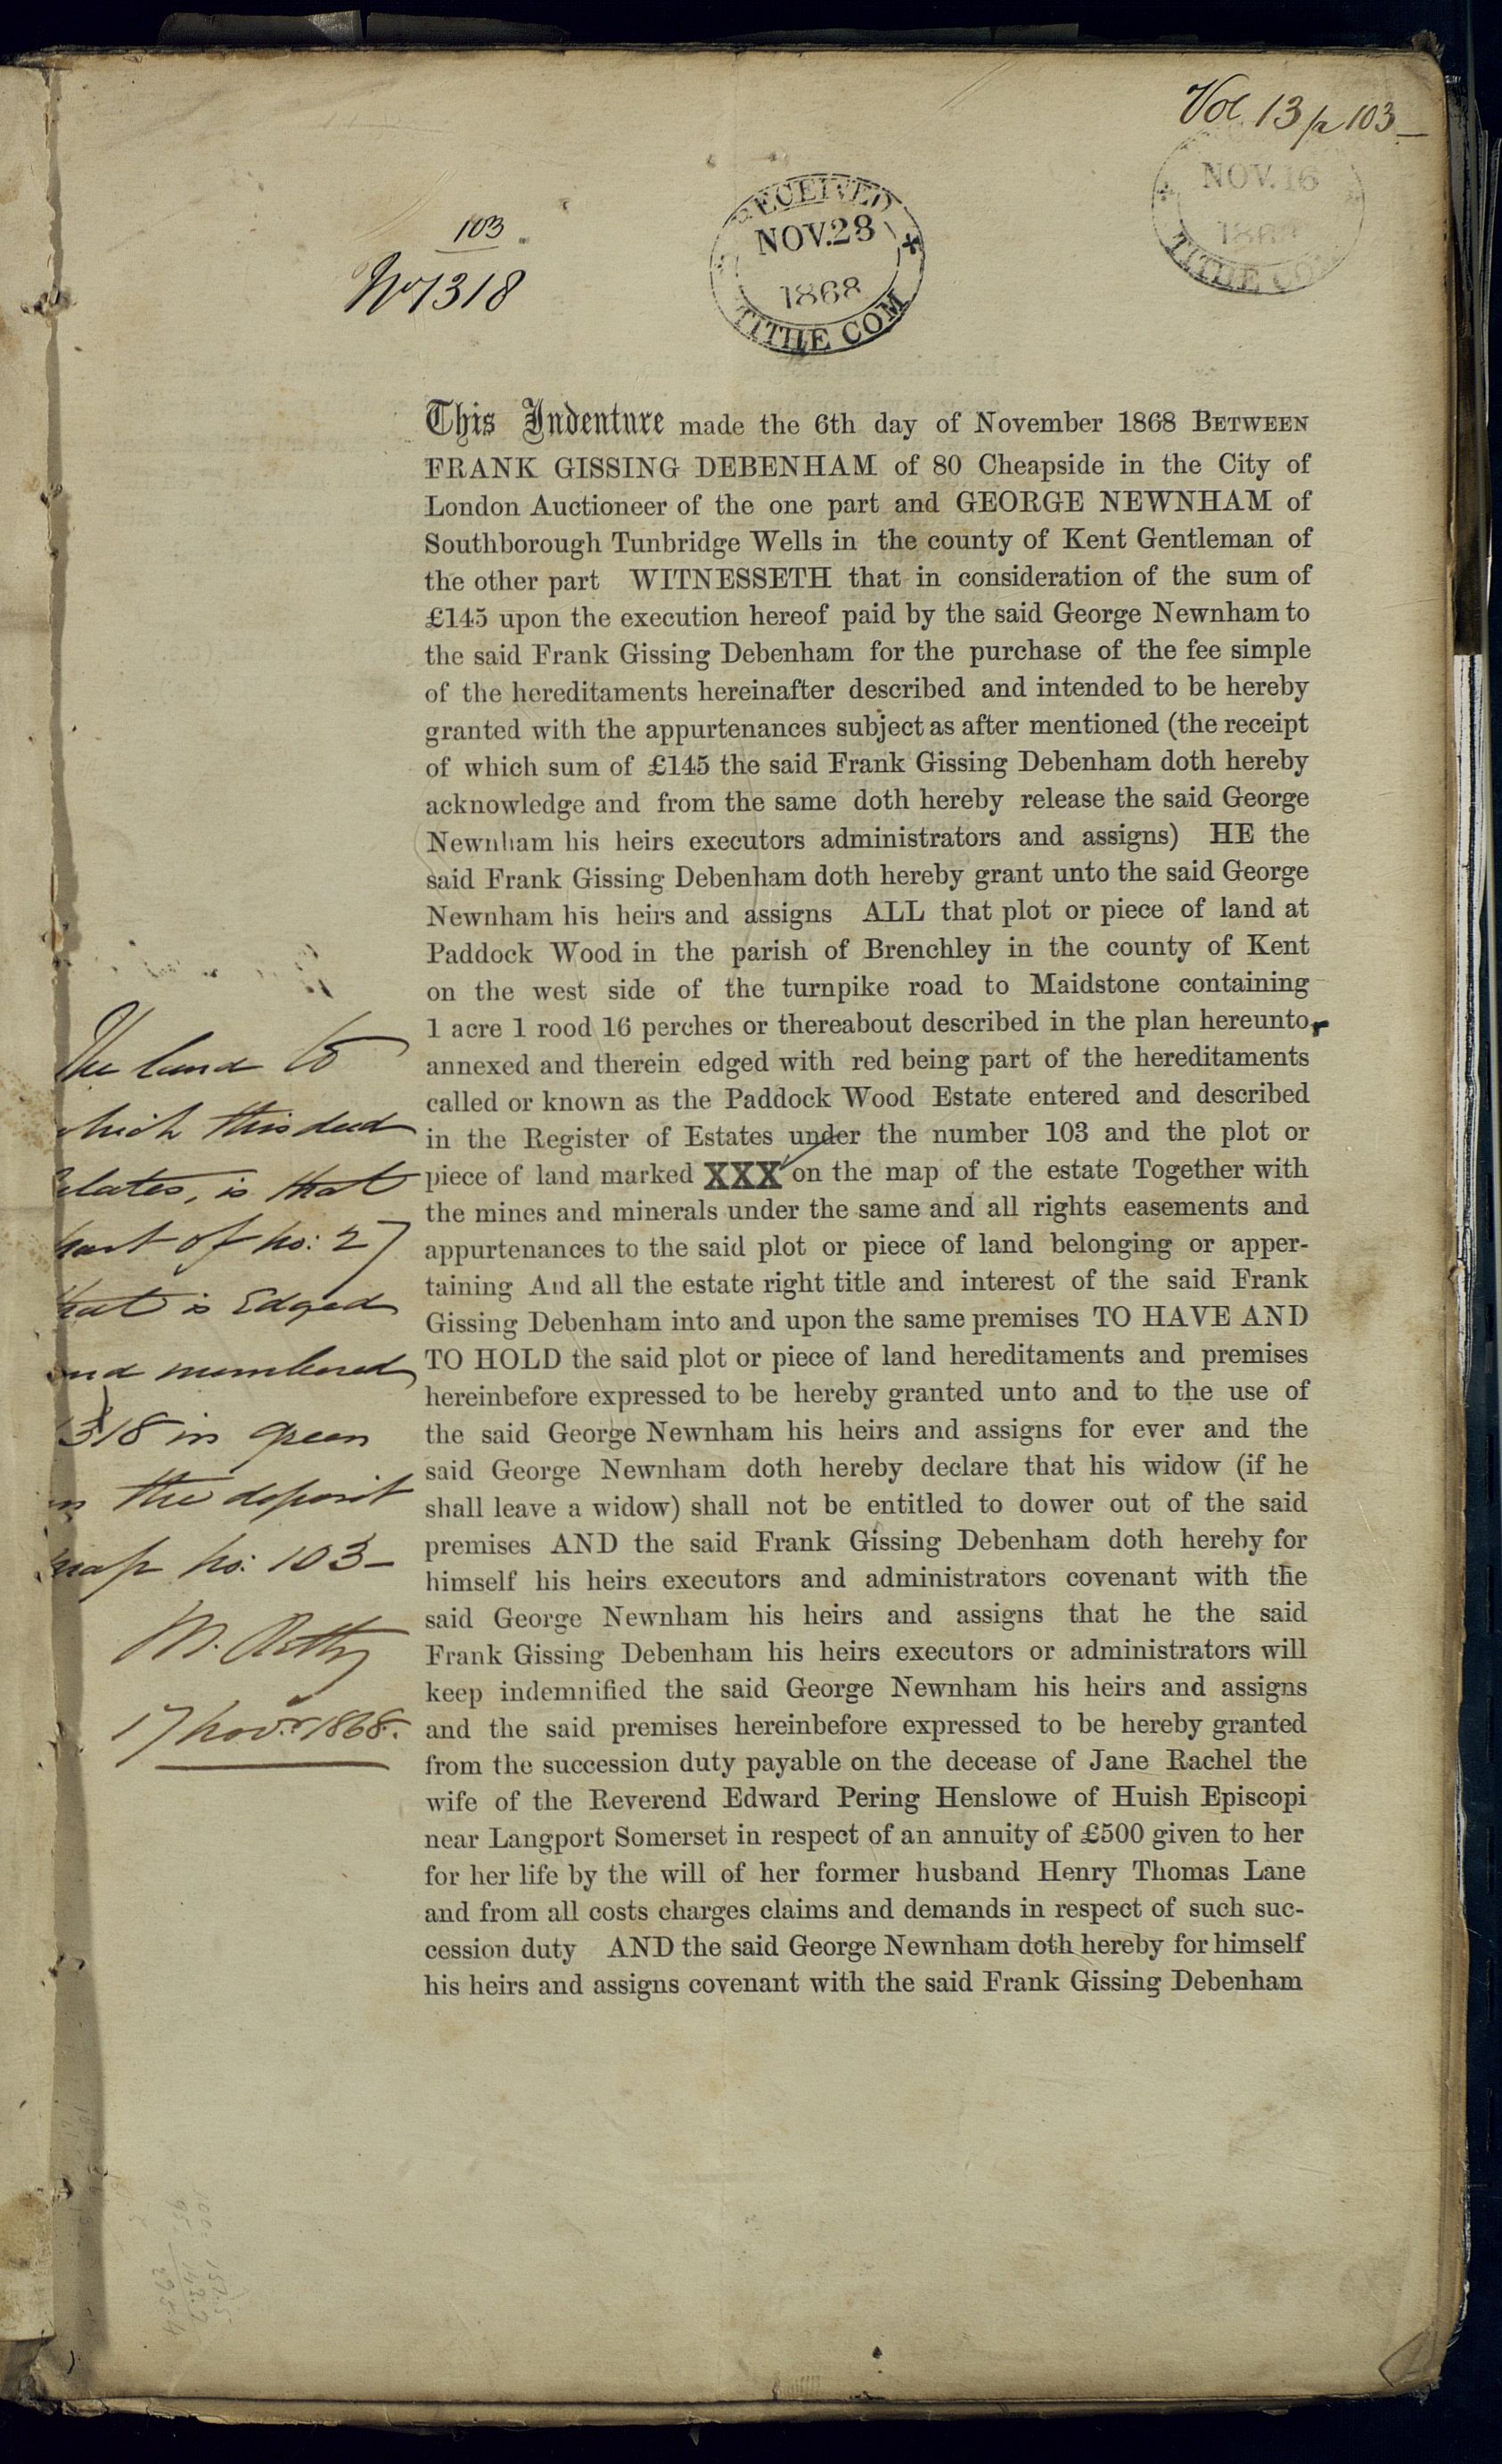 Vol 13 p 103
NOV. 16
TITHE COM
RECEIVED
NOV. 28
1868
TITHE COM
103
No 1318
This Indenture made the 6th day of November 1868 BETWEEN
FRANK GISSING DEBENHAM of 80 Cheapside in the City of
London Auctioneer of the one part and GEORGE NEWNHAM of
Southborough Tunbridge Wells in the county of Kent Gentleman of
the other part WITNESSETH that in consideration of the sum of
£145 upon the execution hereof paid by the said George Newnham to
the said Frank Gissing Debenham for the purchase of the fee simple
of the hereditaments hereinafter described and intended to be hereby
granted with the appurtenances subject as after mentioned (the receipt
of which sum of £145 the said Frank Gissing Debenham doth hereby
acknowledge and from the same doth hereby release the said George
Newnham his heirs executors administrators and assigns) HE the
said Frank Gissing Debenham doth hereby grant unto the said George
Newnham his heirs and assigns ALL that plot or piece of land at
Paddock Wood in the parish of Brenchley in the county of Kent
on the west side of the turnpike road to Maidstone containing
1 acre 1 rood 16 perches or thereabout described in the plan hereunto
annexed and therein edged with red being part of the hereditaments
called or known as the Paddock Wood Estate entered and described
in the Register of Estates under the number 103 and the plot or
piece of land marked XXX on the map of the estate Together with
the mines and minerals under the same and all rights easements and
appurtenances to the said plot or piece of land belonging or apper-
taining And all the estate right title and interest of the said Frank
Gissing Debenham into and upon the same premises TO HAVE AND
TO HOLD the said plot or piece of land hereditaments and premises
hereinbefore expressed to be hereby granted unto and to the use of
the said George Newnham his heirs and assigns for ever and the
said George Newnham doth hereby declare that his widow (if he
shall leave a widow) shall not be entitled to dower out of the said
premises AND the said Frank Gissing Debenham doth hereby for
himself his heirs executors and administrators covenant with the
said George Newnham his heirs and assigns that he the said
Frank Gissing Debenham his heirs executors or administrators will
keep indemnified the said George Newnham his heirs and assigns
and the said premises hereinbefore expressed to be hereby granted
from the succession duty payable on the decease of Jane Rachel the
wife of the Reverend Edward Pering Henslowe of Huish Episcopi
near Langport Somerset in respect of an annuity of £500 given to her
for her life by the will of her former husband Henry Thomas Lane
and from all costs charges claims and demands in respect of such suc-
cession duty AND the said George Newnham doth hereby for himself
his heirs and assigns covenant with the said Frank Gissing Debenham
The land to
which this deed
relates, is that
part of no: 27
that is Edged
and numbered
1318 in green
in the deposit
map no: 103—
17 Novr 1868.